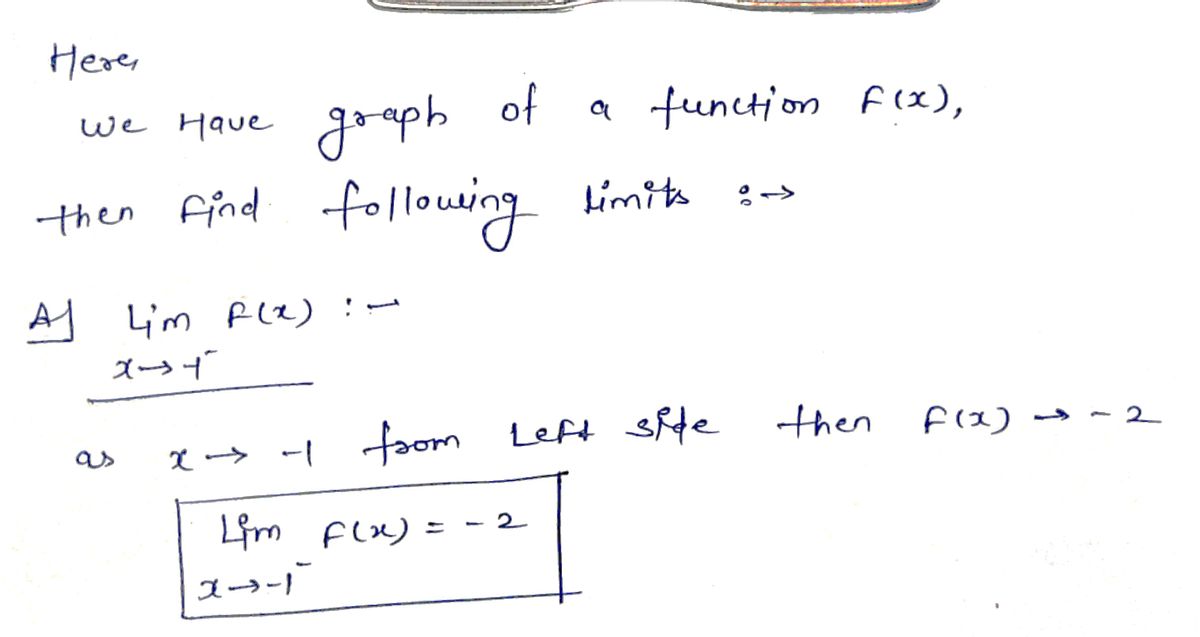 Here,
we Have graph of a function f(x),
then find following limits :→
A] Lim f(x) :-
x→-1⁻
as x → -1 from Left side then f(x) → -2
Lim f(x) = -2
x→-1⁻